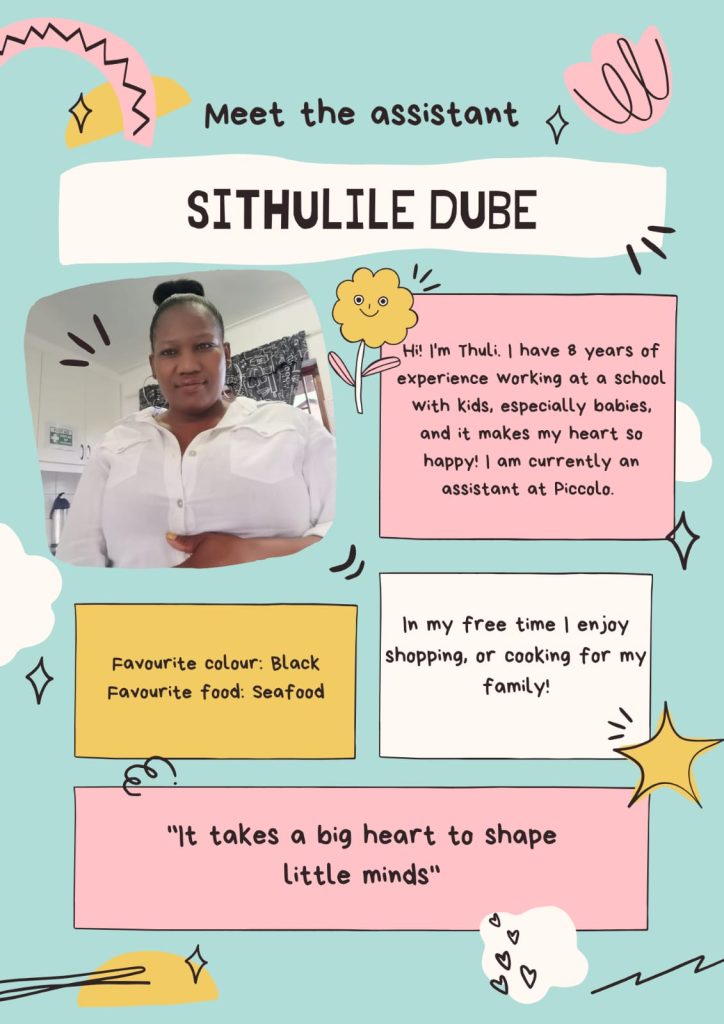 Meet the assistant
SITHULILE DUBE
Hi! I'm Thuli. I have 8 years of
experience working at a school
with kids, especially babies,
and it makes my heart so
happy! I am currently an
assistant at Piccolo.
In my free time I enjoy
shopping, or cooking for my
family!
Favourite colour: Black
Favourite food: Seafood
"It takes a big heart to shape
little minds"